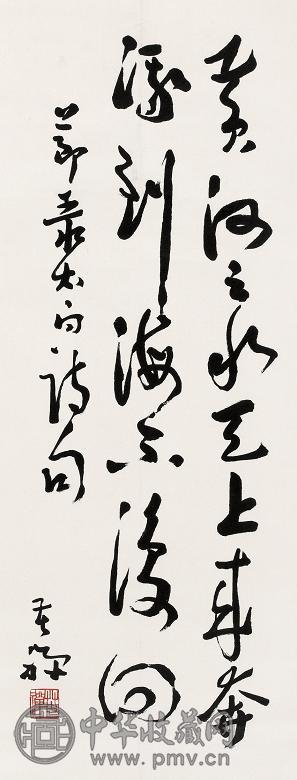 黄河之水天上來奔
流到海不復回
節录太白詩句
中华收藏网
www.pmv.cn